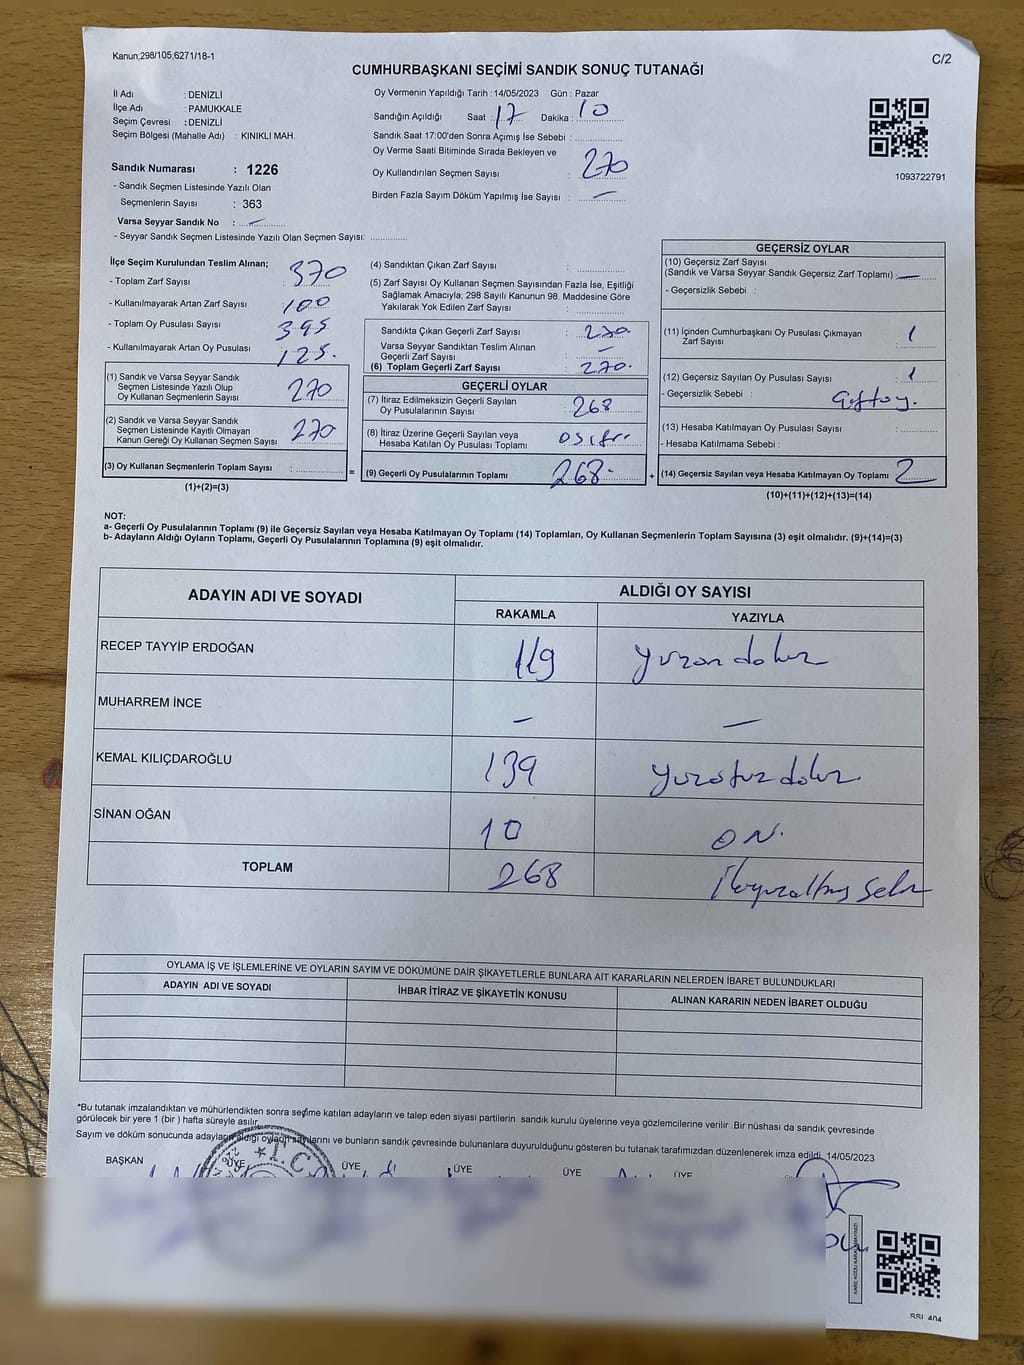 Kanun;298/105;6271/18-1
C/2
CUMHURBAŞKANI SEÇİMİ SANDIK SONUÇ TUTANAĞI
İl Adı : DENİZLİ
İlçe Adı : PAMUKKALE
Seçim Çevresi : DENİZLİ
Seçim Bölgesi (Mahalle Adı) : KINIKLI MAH.
Sandık Numarası : 1226
- Sandık Seçmen Listesinde Yazılı Olan
Seçmenlerin Sayısı : 363
Varsa Seyyar Sandık No : —
- Seyyar Sandık Seçmen Listesinde Yazılı Olan Seçmen Sayısı: ............
Oy Vermenin Yapıldığı Tarih : 14/05/2023 Gün : Pazar
Sandığın Açıldığı Saat : 17 Dakika : 10
Sandık Saat 17:00'den Sonra Açımış İse Sebebi : ............
Oy Verme Saati Bitiminde Sırada Bekleyen ve
Oy Kullandırılan Seçmen Sayısı : 270
Birden Fazla Sayım Döküm Yapılmış İse Sayısı : —
1093722791
İlçe Seçim Kurulundan Teslim Alınan;
- Toplam Zarf Sayısı : 370
- Kullanılmayarak Artan Zarf Sayısı : 100
- Toplam Oy Pusulası Sayısı : 395
- Kullanılmayarak Artan Oy Pusulası : 125.
(1) Sandık ve Varsa Seyyar Sandık
Seçmen Listesinde Yazılı Olup
Oy Kullanan Seçmenlerin Sayısı : 270
(2) Sandık ve Varsa Seyyar Sandık
Seçmen Listesinde Kayıtlı Olmayan
Kanun Gereği Oy Kullanan Seçmen Sayısı : 270
(3) Oy Kullanan Seçmenlerin Toplam Sayısı : ............ =
(1)+(2)=(3)
(4) Sandıktan Çıkan Zarf Sayısı : ............
(5) Zarf Sayısı Oy Kullanan Seçmen Sayısından Fazla İse, Eşitliği
Sağlamak Amacıyla; 298 Sayılı Kanunun 98. Maddesine Göre
Yakılarak Yok Edilen Zarf Sayısı : ............
Sandıkta Çıkan Geçerli Zarf Sayısı : 270.
Varsa Seyyar Sandıktan Teslim Alınan
Geçerli Zarf Sayısı : —
(6) Toplam Geçerli Zarf Sayısı : 270.
GEÇERLİ OYLAR
(7) İtiraz Edilmeksizin Geçerli Sayılan
Oy Pusulalarının Sayısı : 268
(8) İtiraz Üzerine Geçerli Sayılan veya
Hesaba Katılan Oy Pusulası Toplamı : 0 sıfır.
(9) Geçerli Oy Pusulalarının Toplamı : 268- +
GEÇERSİZ OYLAR
(10) Geçersiz Zarf Sayısı
(Sandık ve Varsa Seyyar Sandık Geçersiz Zarf Toplamı) : —
- Geçersizlik Sebebi :
(11) İçinden Cumhurbaşkanı Oy Pusulası Çıkmayan
Zarf Sayısı : 1
(12) Geçersiz Sayılan Oy Pusulası Sayısı : 1
- Geçersizlik Sebebi : Çift oy.
(13) Hesaba Katılmayan Oy Pusulası Sayısı : ............
- Hesaba Katılmama Sebebi :
(14) Geçersiz Sayılan veya Hesaba Katılmayan Oy Toplamı : 2
(10)+(11)+(12)+(13)=(14)
NOT:
a- Geçerli Oy Pusulalarının Toplamı (9) ile Geçersiz Sayılan veya Hesaba Katılmayan Oy Toplamı (14) Toplamları, Oy Kullanan Seçmenlerin Toplam Sayısına (3) eşit olmalıdır. (9)+(14)=(3)
b- Adayların Aldığı Oyların Toplamı, Geçerli Oy Pusulalarının Toplamına (9) eşit olmalıdır.
ADAYIN ADI VE SOYADI ALDIĞI OY SAYISI
RAKAMLA YAZIYLA
RECEP TAYYİP ERDOĞAN 119 yüzon dokuz
MUHARREM İNCE — —
KEMAL KILIÇDAROĞLU 139 yüzotuz dokuz
SİNAN OĞAN 10 ON.
TOPLAM 268 İkiyüzaltmış Sekiz
OYLAMA İŞ VE İŞLEMLERİNE VE OYLARIN SAYIM VE DÖKÜMÜNE DAİR ŞİKAYETLERLE BUNLARA AİT KARARLARIN NELERDEN İBARET BULUNDUKLARI
ADAYIN ADI VE SOYADI İHBAR İTİRAZ VE ŞİKAYETİN KONUSU ALINAN KARARIN NEDEN İBARET OLDUĞU
*Bu tutanak imzalandıktan ve mühürlendikten sonra seçime katılan adayların ve talep eden siyasi partilerin sandık kurulu üyelerine veya gözlemcilerine verilir .Bir nüshası da sandık çevresinde
görülecek bir yere 1 (bir ) hafta süreyle asılır.
Sayım ve döküm sonucunda adayların aldığı oyların sayılarını ve bunların sandık çevresinde bulunanlara duyurulduğunu gösteren bu tutanak tarafımızdan düzenlenerek imza edildi. 14/05/2023
BAŞKAN ÜYE ÜYE ÜYE ÜYE ÜYE
T.C.